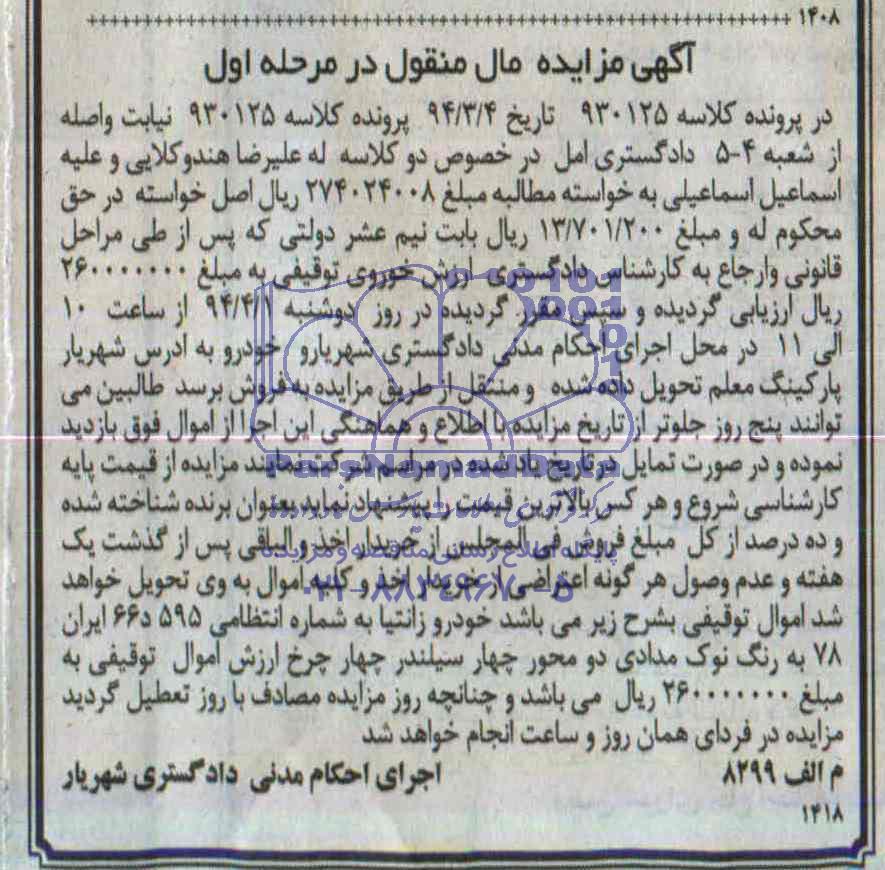 ۱۴۰۸
آگهی مزایده مال منقول در مرحله اول
در پرونده کلاسه ۹۳۰۱۲۵ تاریخ ۹۴/۳/۴ پرونده کلاسه ۹۳۰۱۲۵ نیابت واصله
از شعبه ۴-۵ دادگستری امل در خصوص دو کلاسه له علیرضا هندوکلایی و علیه
اسماعیل اسماعیلی به خواسته مطالبه مبلغ ۲۷۴۰۲۴۰۰۸ ریال اصل خواسته در حق
محکوم له و مبلغ ۱۳/۷۰۱/۲۰۰ ریال بابت نیم عشر دولتی که پس از طی مراحل
قانونی وارجاع به کارشناس دادگستری ارزش خوروی توقیفی به مبلغ ۲۶۰۰۰۰۰۰۰
ریال ارزیابی گردیده و سپس مقرر گردیده در روز دوشنبه ۹۴/۴/۱ از ساعت ۱۰
الی ۱۱ در محل اجرای احکام مدنی دادگستری شهریارو خودرو به ادرس شهریار
پارکینگ معلم تحویل داده شده و منتقل از طریق مزایده به فروش برسد طالبین می
توانند پنج روز جلوتر از تاریخ مزایده با اطلاع و هماهنگی این اجرا از اموال فوق بازدید
نموده و در صورت تمایل در تاریخ یاد شده در مراسم شرکت نمایند مزایده از قیمت پایه
کارشناسی شروع و هر کس بالاترین قیمت را پیشنهاد نماید بعنوان برنده شناخته شده
و ده درصد از کل مبلغ فروش فی المجلس از خریدار اخذ و الباقی پس از گذشت یک
هفته و عدم وصول هر گونه اعتراضی از خریدار اخذ و کلیه اموال به وی تحویل خواهد
شد اموال توقیفی بشرح زیر می باشد خودرو زانتیا به شماره انتظامی ۵۹۵ د۶۶ ایران
۷۸ به رنگ نوک مدادی دو محور چهار سیلندر چهار چرخ ارزش اموال توقیفی به
مبلغ ۲۶۰۰۰۰۰۰۰ ریال می باشد و چنانچه روز مزایده مصادف با روز تعطیل گردید
مزایده در فردای همان روز و ساعت انجام خواهد شد
م الف ۸۲۹۹ اجرای احکام مدنی دادگستری شهریار
۱۴۱۸
ParsNamadData
پایگاه اطلاع رسانی مناقصه و مزایده